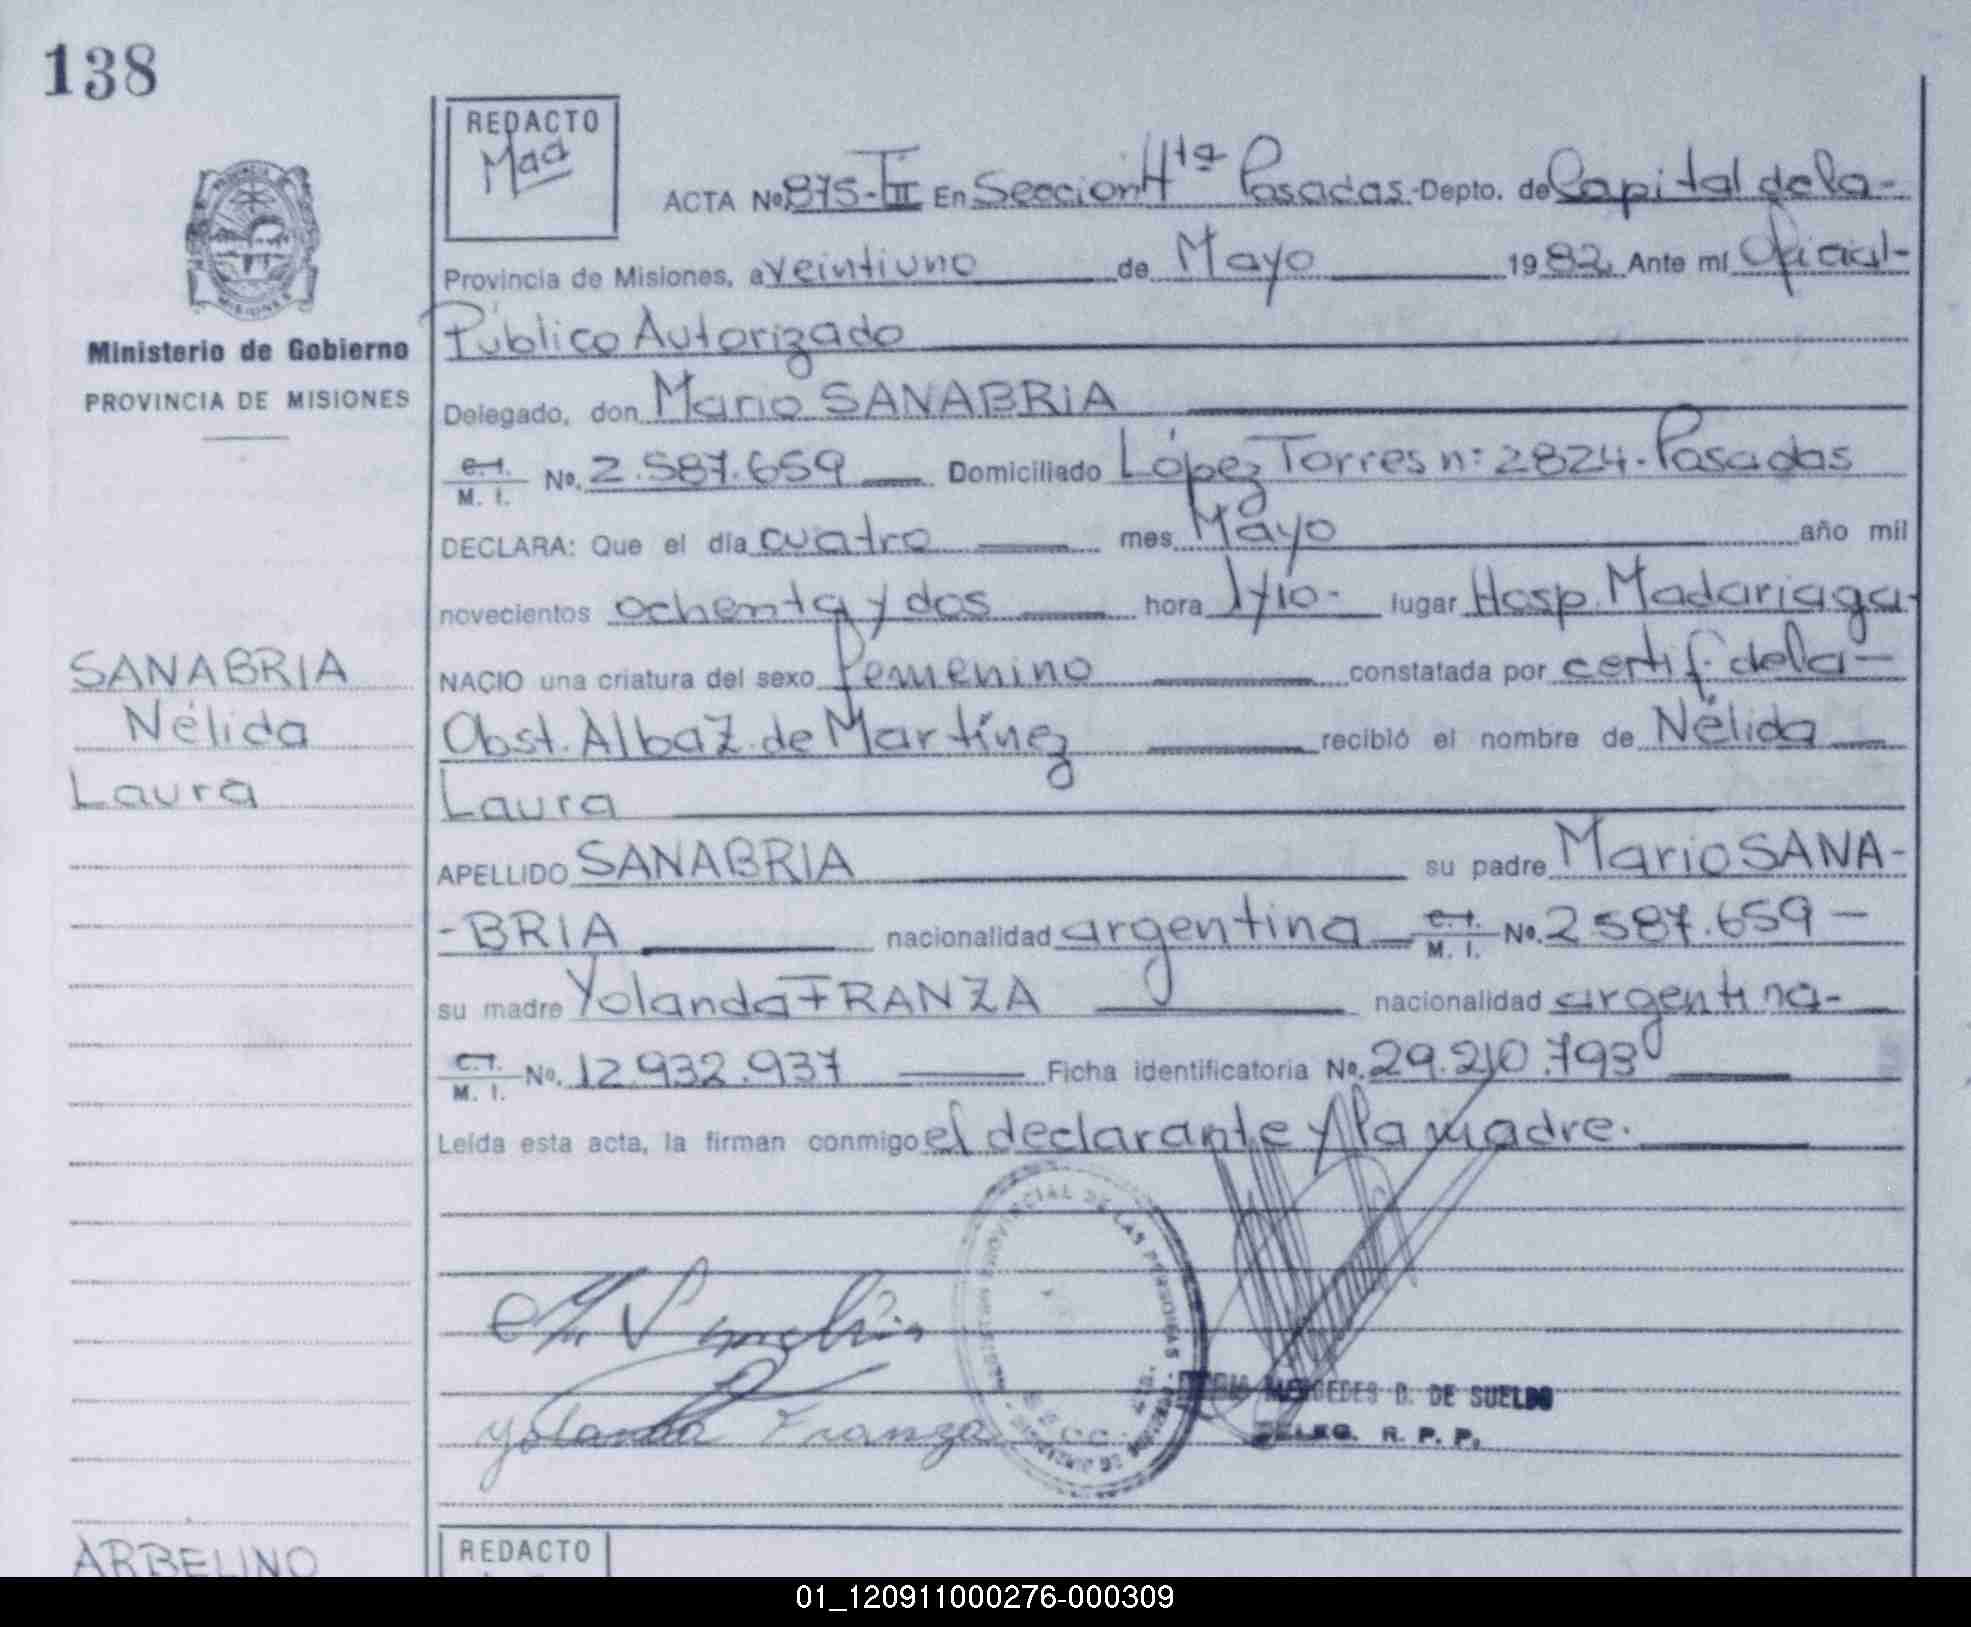 138
REDACTO
Maa
ACTA No. 875-III En Sección 4ta Posadas.-Depto. de Capital de la-
Provincia de Misiones, a veintiuno de Mayo 1982. Ante mí Oficial-
Público Autorizado
Delegado, don Mario SANABRIA
C.I. M. I. No. 2.587.659 Domiciliado López Torres nº 2824. Posadas
DECLARA: Que el día cuatro mes Mayo año mil
novecientos ochenta y dos hora 1y10- lugar Hosp. Madariaga-
NACIO una criatura del sexo femenino constatada por certif. de la-
Obst. Alba Z. de Martínez recibió el nombre de Nélida
Laura
APELLIDO SANABRIA su padre Mario SANA-
-BRIA nacionalidad argentina C.I. M. I. No. 2.587.659-
su madre Yolanda FRANZA nacionalidad argentina-
C.I. M. I. No. 12.932.937 Ficha identificatoria No. 29.210.793
Leída esta acta, la firman conmigo el declarante y la madre.
PROVINCIA
MISIONES
Ministerio de Gobierno
PROVINCIA DE MISIONES
SANABRIA
Nélida
Laura
REGISTRO PROVINCIAL DE LAS PERSONAS
Yolanda Franza
MERCEDES D. DE SUELDO
DELEG. R. P. P.
ARBELINO
REDACTO
01_120911000276-000309